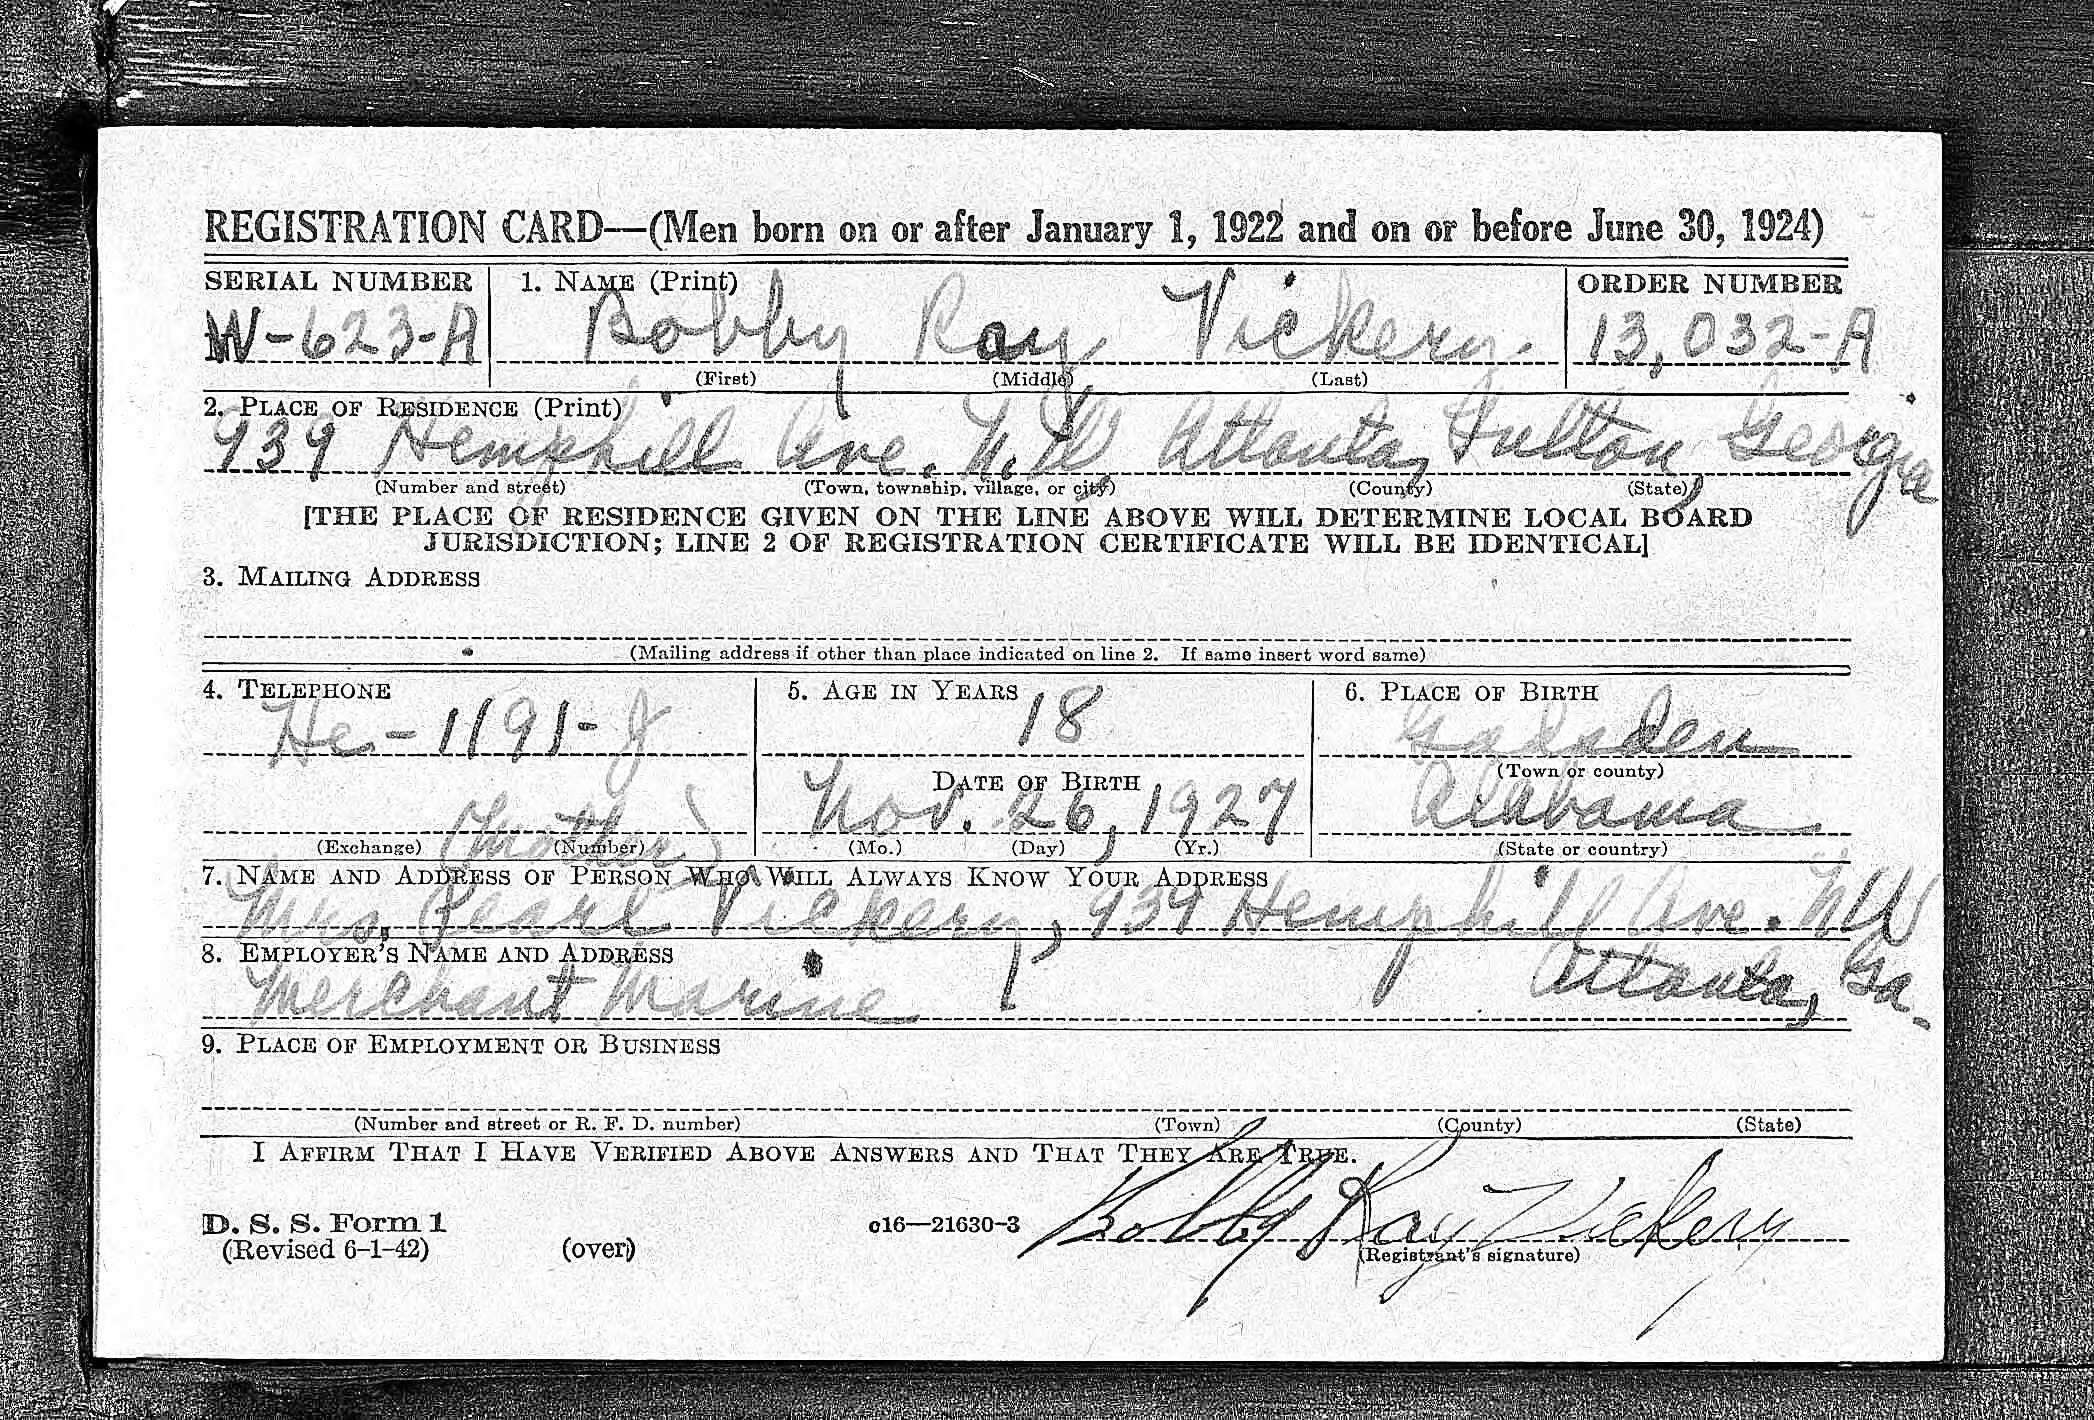 REGISTRATION CARD—(Men born on or after January 1, 1922 and on or before June 30, 1924)
SERIAL NUMBER 1. NAME (Print) ORDER NUMBER
W-623-A Bobby Ray Vickery. 13,032-A
(First) (Middle) (Last)
2. PLACE OF RESIDENCE (Print)
939 Hemphill Ave. N.W. Atlanta, Fulton, Georgia
(Number and street) (Town, township, village, or city) (County) (State)
[THE PLACE OF RESIDENCE GIVEN ON THE LINE ABOVE WILL DETERMINE LOCAL BOARD
JURISDICTION; LINE 2 OF REGISTRATION CERTIFICATE WILL BE IDENTICAL]
3. MAILING ADDRESS
(Mailing address if other than place indicated on line 2. If same insert word same)
4. TELEPHONE 5. AGE IN YEARS 6. PLACE OF BIRTH
He-1191-J 18 Gadsden
DATE OF BIRTH (Town or county)
(Mother) Nov. 26, 1927 Alabama
(Exchange) (Number) (Mo.) (Day) (Yr.) (State or country)
7. NAME AND ADDRESS OF PERSON WHO WILL ALWAYS KNOW YOUR ADDRESS
Mrs. Pearl Vickery, 939 Hemphill Ave. NW
8. EMPLOYER'S NAME AND ADDRESS Atlanta, Ga.
Merchant Marine
9. PLACE OF EMPLOYMENT OR BUSINESS
(Number and street or R. F. D. number) (Town) (County) (State)
I AFFIRM THAT I HAVE VERIFIED ABOVE ANSWERS AND THAT THEY ARE TRUE.
D. S. S. Form 1 c16—21630-3 Bobby Ray Vickery
(Revised 6-1-42) (over) (Registrant's signature)